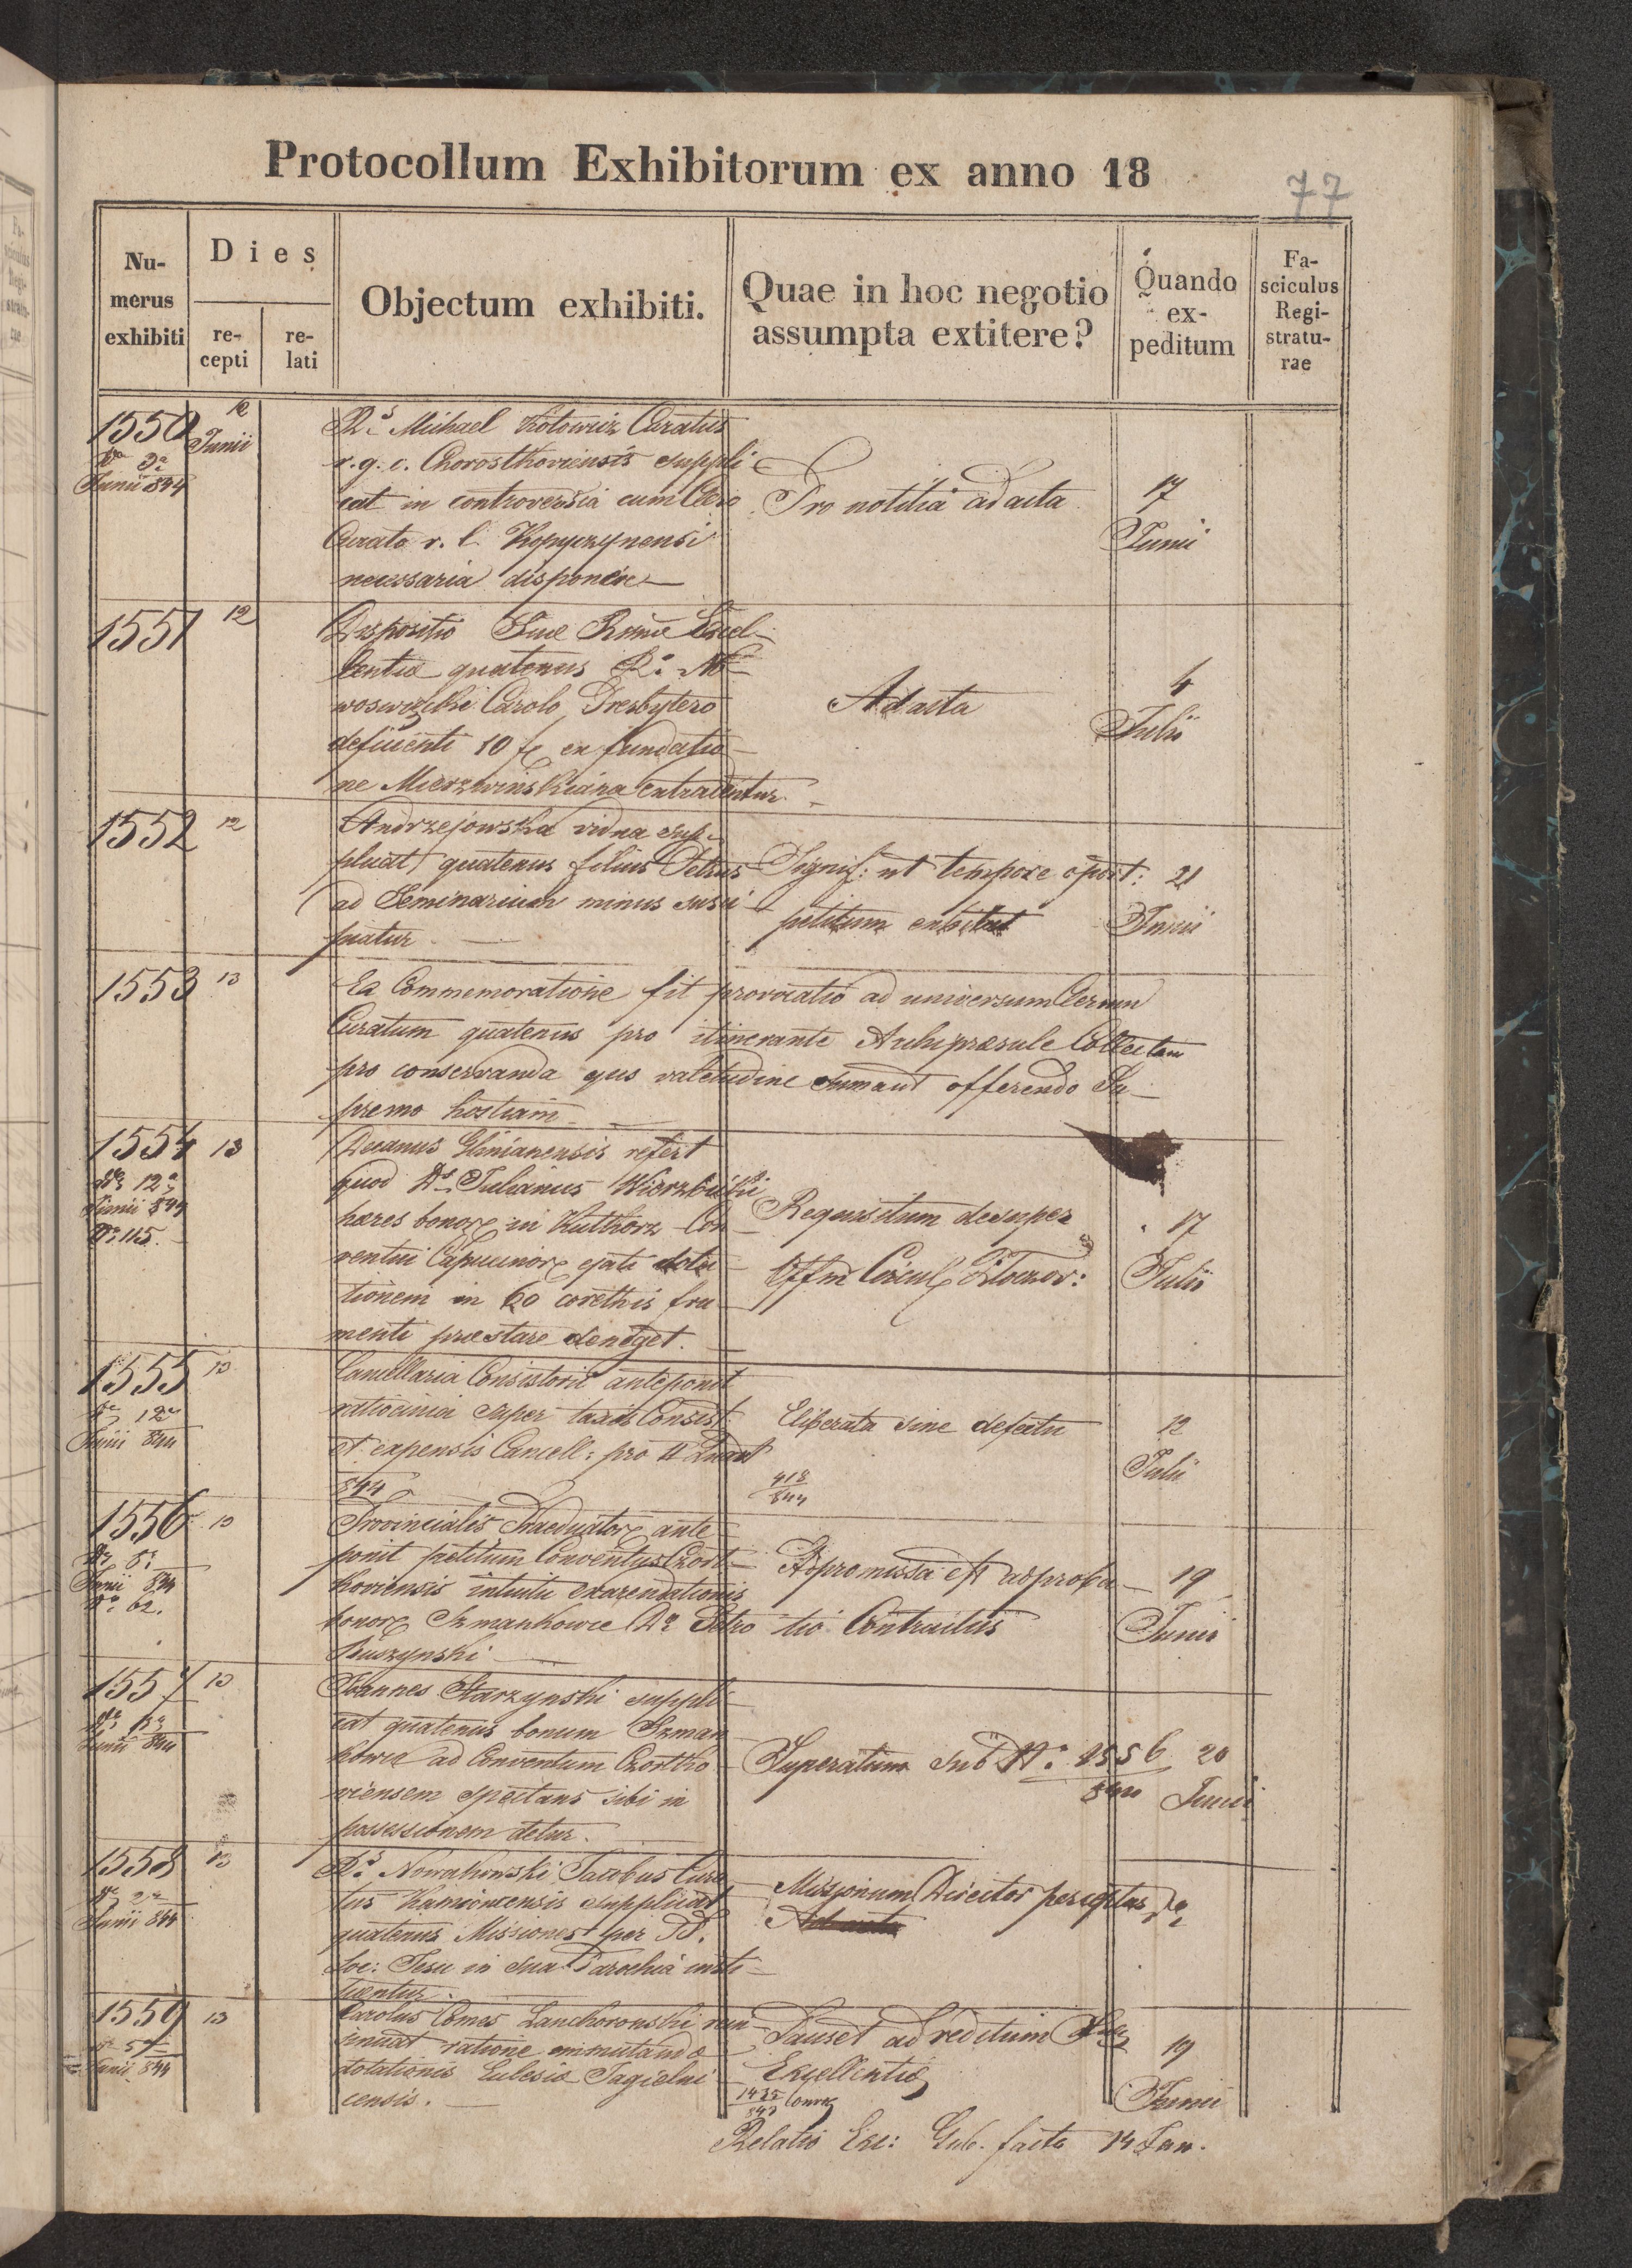 Protocollum Exhibitorum ex anno 18
77
Numerus exhibiti
Dies
recepti
relati
Objectum exhibiti.
Quae in hoc negotio assumpta extitere?
Quando expeditum
Fasciculus Registraturae
1550
12 Junii
Junii 844
Rs Michael Kotowicz Curatus
r. g. c. Chorosthoviensis suppli
cat in controversia cum Clero
Curato r. l. Kopyczynensi
necessaria disponere
Pro notitia ad acta
17
Junii
1551
12
Dispositio Suae Excel
lentiae quatenus
Carolo Presbytero
deficienti 10 f ex fundatio
ne Mierzwinskiana extradentur.
Ad acta
4
Julii
1552
12
Andrzejowska vidua sup
plicat quatenus filius Petrus
ad Seminarium minus susci
piatur.
Signif: ut tempore oport:
petitum exhibeat
21
Junii
1553
13
Ex Commemoratione fit provocatio ad universum Clerum
Curatum quatenus pro itinerante Archipraesule Collectam
pro conservanda ejus valetudine sumant offerendo Su
premo hostiam.
1554
13
12
Junii 844
Nr. 115.
Decanus Glinianensis refert
quod Ds Julianus Wierzbicki
haeres bonor in Kutkorz Con
ventui Capucinor
tionem in 60 corethis fru
menti praestare deneget.
Requisitum desuper
Offm Circul Zloczov:
17
Julii
1555
13
12
Junii 844
Cancellaria Consistorii anteponit
ratiocinia super taxis Consist:
et expensis Cancell: pro II Quart
844
Eliberata sine defectu
418
844
12
Julii
1556
13
8
Junii 844
Nr. 62.
Provincialis Praedicator ante
ponit petitum Conventus Czort
koviensis intuitu exarendationis
bonor Szmankowce Do Petro
Ruszynski
Appromissa est approba
tio Contractus
19
Junii
1557
13
Junii 844
Joannes Starzynski suppli
cat quatenus bonum Szman
kowce ad Conventum Czortko
viensem spectans sibi in
possessionem detur.
Superatum sub No 1556
844
20
Junii
1558
13
2
Junii 844
Rs Nowakowski Jacobus Cura
tus supplicat
quatenus Missiones per PP.
Soc: Jesu in sua Parochia insti
tuantur.
Missionum Director
Ad acta
1559
13
5
Junii 844
Carolus Comes Lanckoronski
ratione commutandae
dotationis Eclesiae Jagielni
censis.
ad reditum Suae
Excellentiae
1435
843
Relatio Exc: Gub. facta 14 Jan.
19
Junii